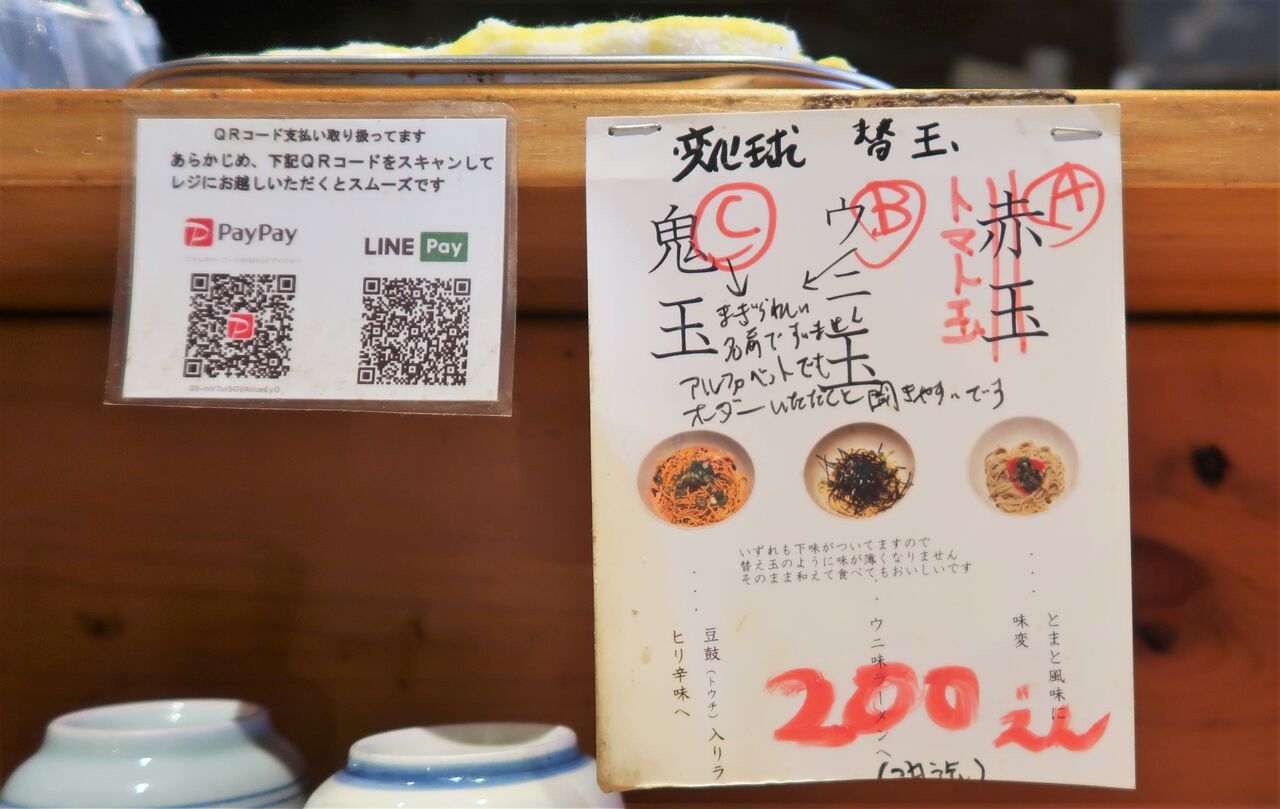 QRコード支払い取り扱ってます
あらかじめ、下記QRコードをスキャンして
レジにお越しいただくとスムーズです
PayPay
LINE Pay
変化球 替玉
A
赤玉
トマト玉
B
ウニ玉
C
鬼玉
まぎらわしい
名前ですいません
アルファベットでも
オーダーいただくと聞きやすいです
いずれも下味がついてますので
替え玉のように味が薄くなりません
そのまま和えて食べてもおいしいです
・・・とまと風味に
味変
・・・ウニ味ラーメンへ
・・・豆鼓(トウチ)入りラ
ヒリ辛味へ
200えん